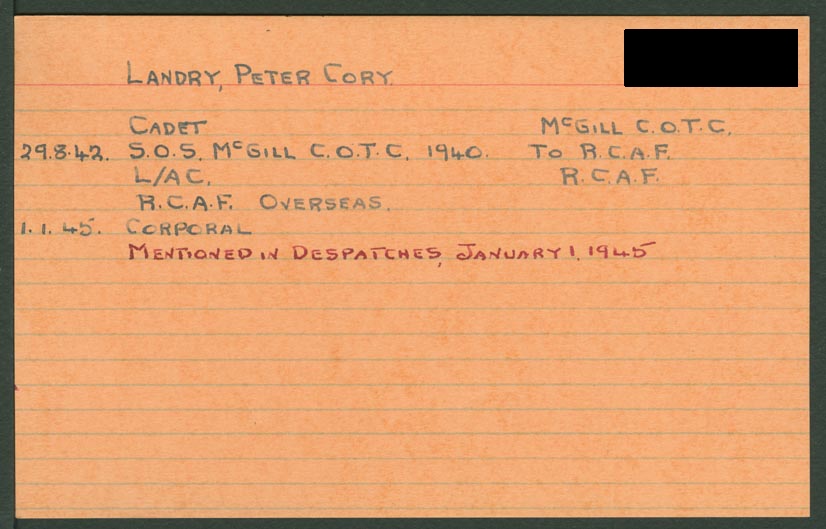 LANDRY, PETER CORY.
CADET McGILL C.O.T.C.
29.8.42. S.O.S. McGILL C.O.T.C. 1940. TO R.C.A.F.
L/AC. R.C.A.F.
R.C.A.F. OVERSEAS.
1.1.45. CORPORAL
MENTIONED IN DESPATCHES, JANUARY 1, 1945